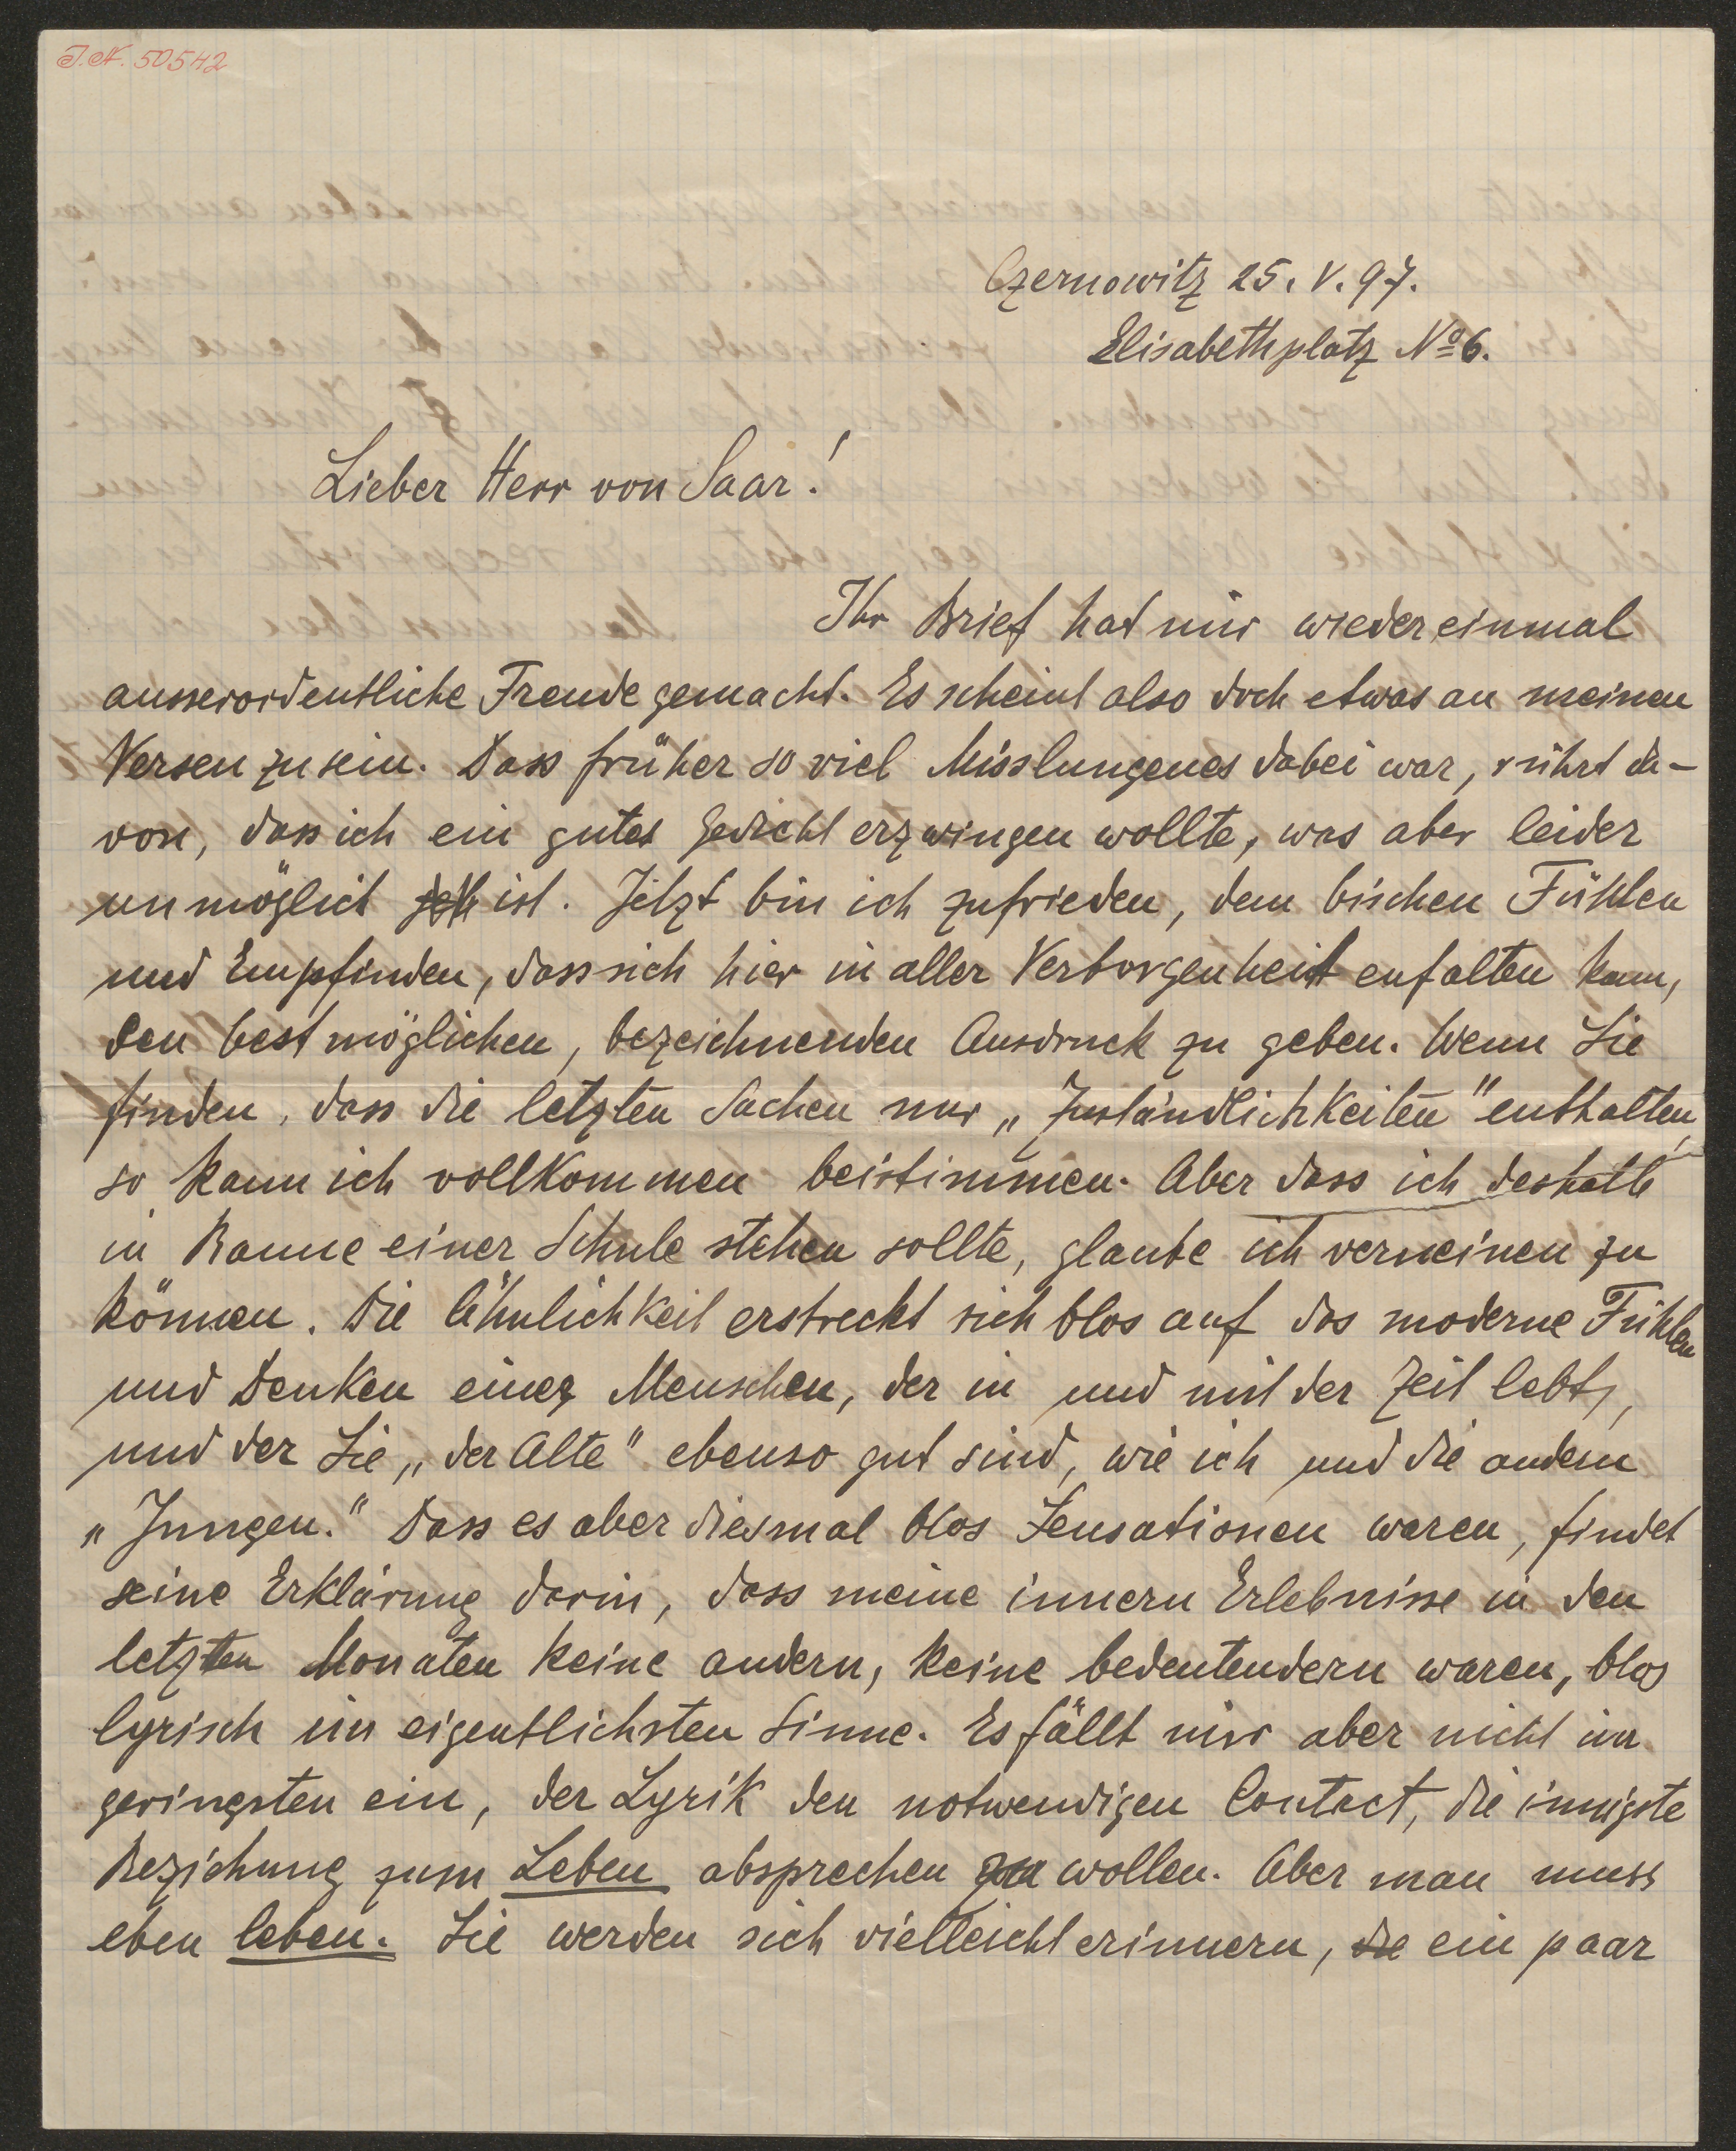 J.N. 50542
Czernowitz 25. V. 97.
Elisabethplatz No 6.
Lieber Herr von Saar!
Ihr Brief hat mir wieder einmal
ausserordentliche Freude gemacht. Es scheint also doch etwas an meinen
Versen zu sein. Dass früher so viel Misslungenes dabei war, rührt da-
von, dass ich ein gutes Gedicht erzwingen wollte, was aber leider
unmöglich ist. Jetzt bin ich zufrieden, dem bischen Fühlen
und Empfinden, dass sich hier in aller Verborgenheit enfalten kann,
den bestmöglichen, bezeichnenden Ausdruck zu geben. Wenn Sie
finden, dass die letzten Sachen nur „Zuständlichkeiten" enthalten,
so kann ich vollkommen beistimmen. Aber dass ich deshalb
in Banne einer Schule stehen sollte, glaube ich verneinen zu
können. Die Ähnlichkeit erstreckt sich blos auf das moderne Fühlen
und Denken eines Menschen, der in und mit der Zeit lebt,
und der Sie „der Alte" ebenso gut sind, wie ich und die andern
„Jungen." Dass es aber diesmal blos Sensationen waren, findet
seine Erklärung darin, dass meine innern Erlebnisse in den
letzten Monaten keine andern, keine bedeutendern waren, blos
lyrisch im eigentlichsten Sinne. Es fällt mir aber nicht im
geringsten ein, der Lyrik den notwendigen Contact, die innigste
Beziehung zum Leben absprechen zu wollen. Aber man muss
eben leben. Sie werden sich vielleicht erinnern, die ein paar